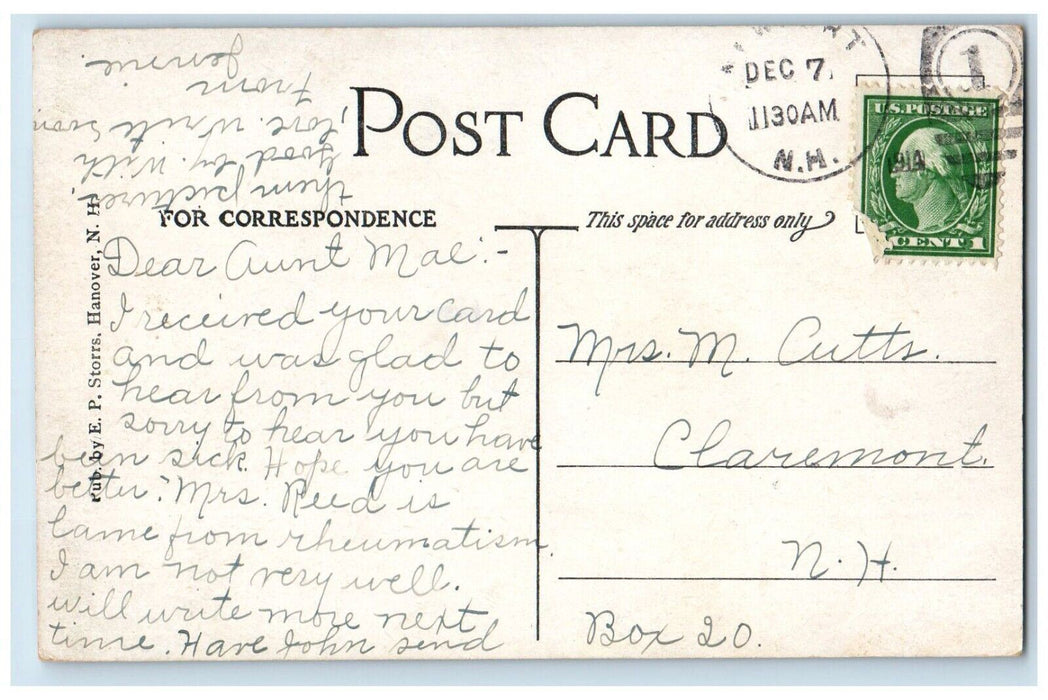 POST CARD
DEC 7
1130AM
N.H.
1
U.S. POSTAGE
CENT 1
FOR CORRESPONDENCE
This space for address only
Pub. by E. P. Storrs, Hanover, N. H.
Dear Aunt Mae:-
I received your card
and was glad to
hear from you but
sorry to hear you have
been sick. Hope you are
better. Mrs. Reed is
lame from rheumatism.
I am not very well.
will write more next
time. Have John send
them pictures.
Good by. With
love. Write soon
From
Jennie.
Mrs. M. Cutts.
Claremont.
N. H.
Box 20.